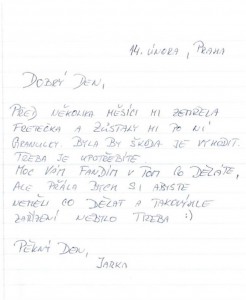 14. ÚNORA, PRAHA
DOBRÝ DEN,
PŘED NĚKOLIKA MĚSÍCI MI ZEMŘELA
FRETEČKA A ZŮSTALY MI PO NÍ
GRANULKY. BYLA BY ŠKODA JE VYHODIT.
TŘEBA JE UPOTŘEBÍTE
MOC VÁM FANDÍM V TOM CO DĚLÁTE,
ALE PŘÁLA BYCH SI ABYSTE
NEMĚLI CO DĚLAT A TAKOVÝHLE
ZAŘÍZENÍ NEBYLO TŘEBA :)
PĚKNÝ DEN,
JARKA